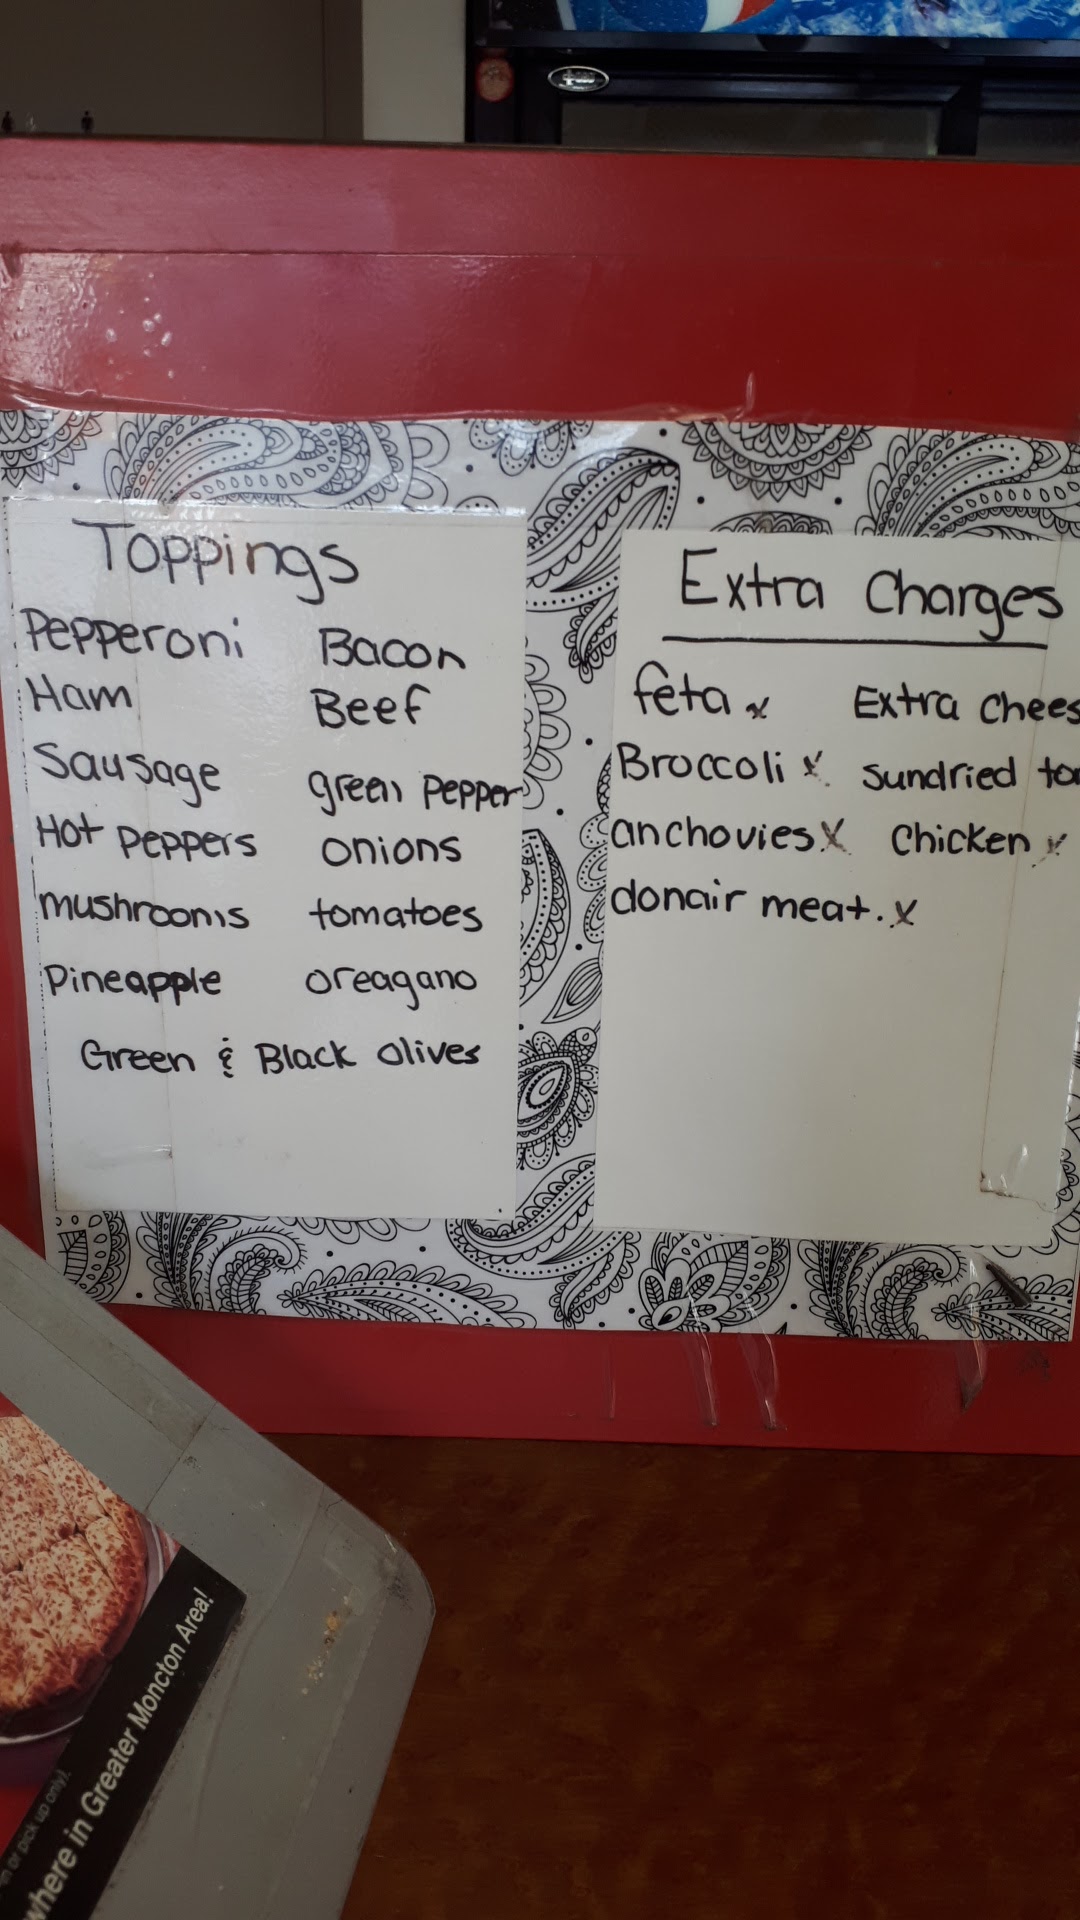 Toppings
Pepperoni Bacon
Ham Beef
Sausage green Pepper
Hot Peppers onions
mushrooms tomatoes
Pineapple oreagano
Green & Black olives
Extra Charges
feta x Extra Chees
Broccoli x sundried
anchovies x Chicken x
donair meat. x
where in Greater Moncton Area!
or pick up only).